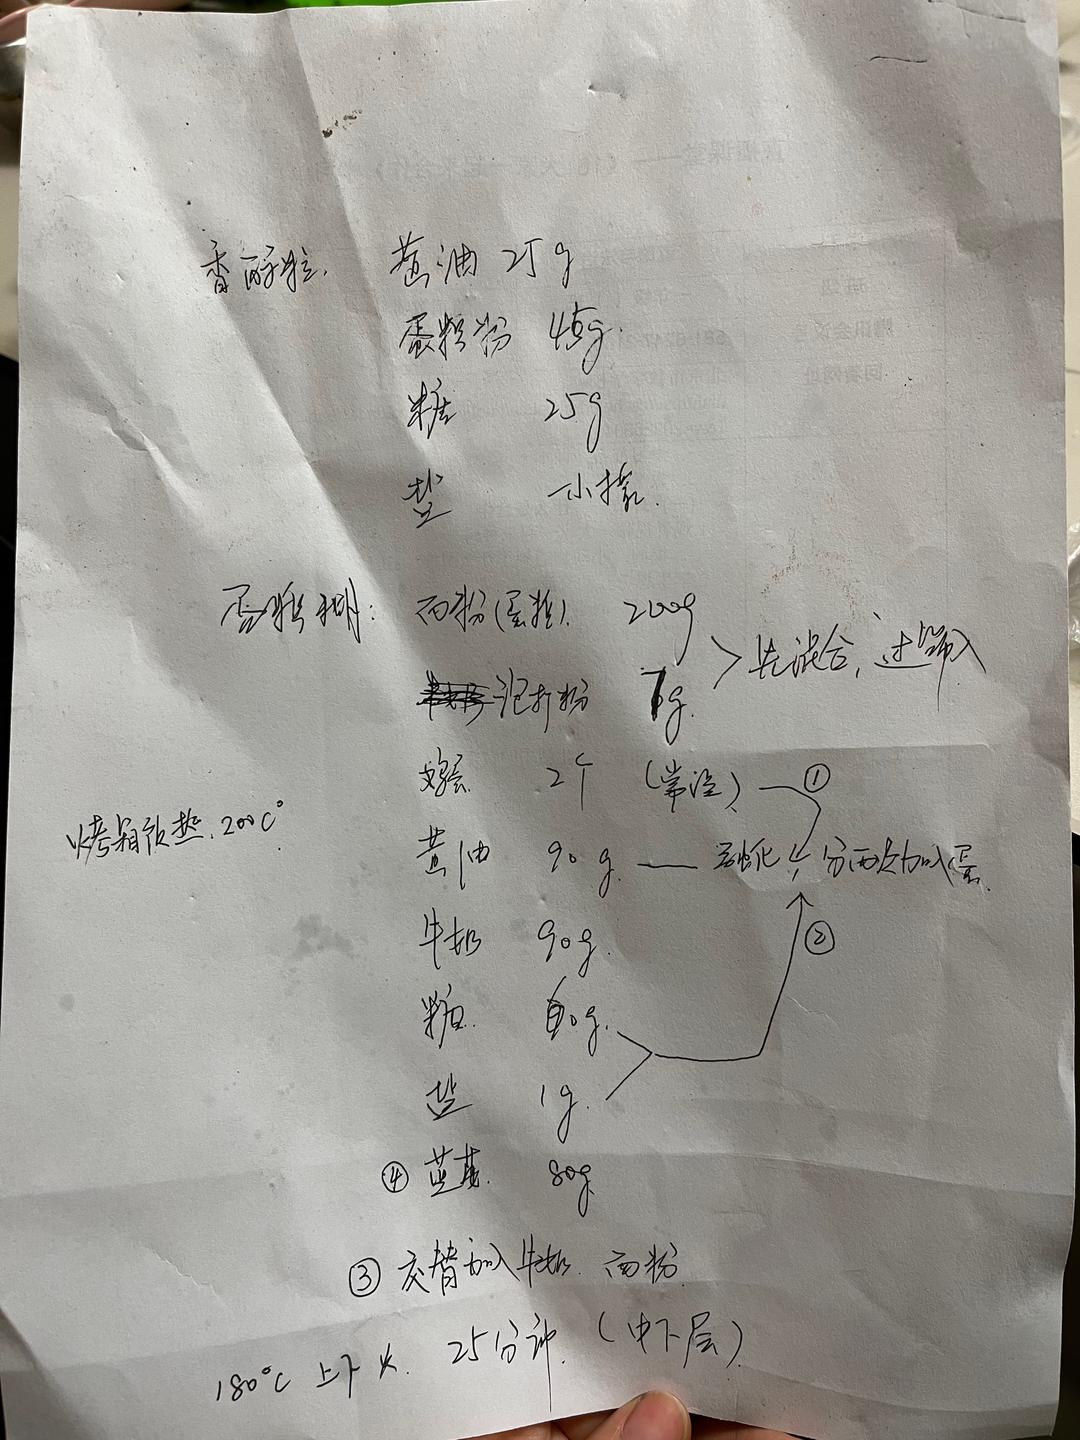 香酥粒. 黄油 25g
蛋糕粉 45g.
糖 25g
盐 一小撮.
蛋糕糊: 面粉(蛋糕). 200g
泡打粉 7g. > 先混合, 过筛入
鸡蛋 2个 (常温) ①
烤箱预热. 200C°
黄油 90g. — 融化 分两次加入蛋.
牛奶 90g. ②
糖. 0g.
盐 1g.
④ 蓝莓. 80g
③ 交替加入牛奶. 面粉.
180°C 上下火. 25分钟. (中下层)